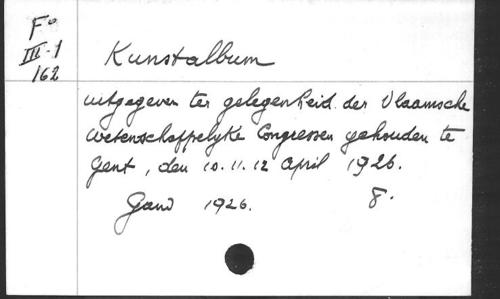 F°
III-1
162
Kunstalbum
uitgegeven ter gelegenheid der Vlaamsche
wetenschappelyke Congressen gehouden te
Gent, den 10. 11. 12 April 1926.
Gand 1926. 8.